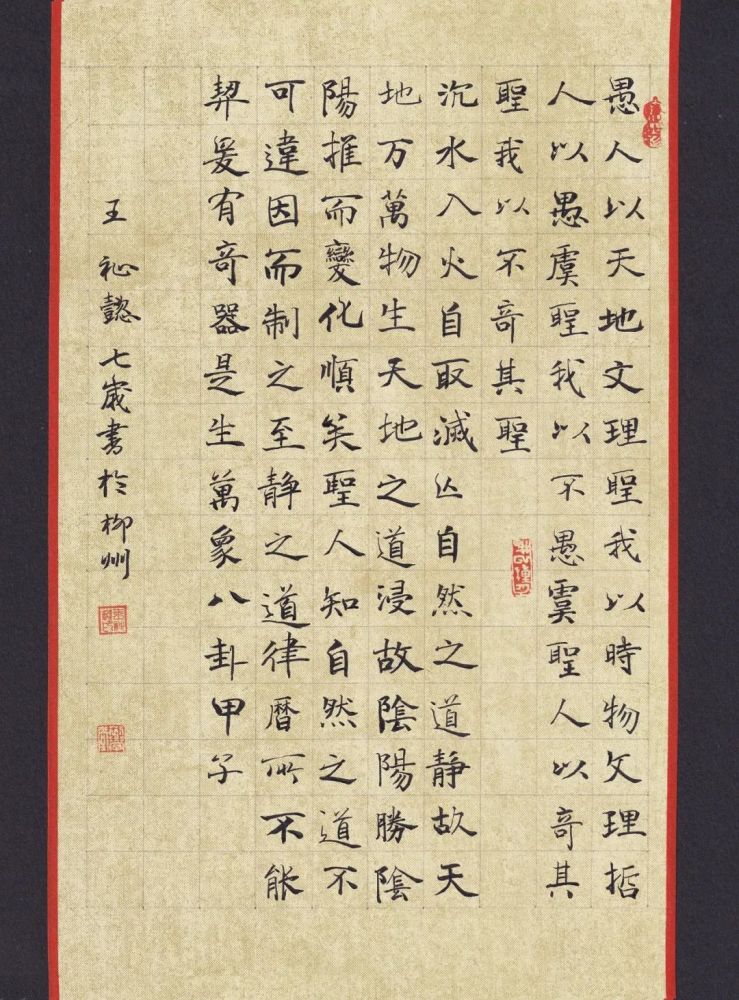 愚人以天地文理聖我以時物文理哲
人以愚虞聖我以不愚虞聖人以奇其
聖我以不奇其聖
沉水入火自取滅亡自然之道静故天
地万萬物生天地之道浸故陰陽勝陰
陽推而變化順矣聖人知自然之道不
可違因而制之至静之道律曆所不能
契爰有奇器是生萬象八卦甲子
王祉懿七歲書於柳州